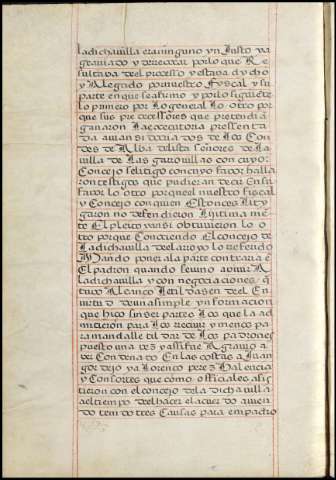 ladichavilla eraninguno yn Justo ya
graviado y derrocar por lo que Re
sultava del processo y estava dicho
y Alegado pornuestro fyscal y su
parte en que se afirmo y por lo siguiẽte
lo primero por lo general lo otro por
que sus predecessores que pretendiã
ganaron la executoria pressenta
da avian sido criados de los Con
des de Alba delista señores de la
villa de las garrovillas con cuyo
Concejo se litigo con cuyo favor halla
ron testigos que pudieran decir En su
favor lo otro porque el nuestro fiscal
y Concejo con quien Estonces lity
garon no defendieron ligitima mẽ
te El pleito y ansi obtuvieron lo o
tro porque Conociendo El concejo de
Ladichavilla de el arroyo lo referido
Mando poner a la parte contraria ẽ
El padron quando se vino a vivir A
ladichavilla y con negociaciones q̃
tuvo Alcanco le tildasen del En
virtud de una simple ynformacion
que hico sin ser parte los que la ad
mitieron para los recivir y menos pa
ra mandalle tildar de los padrones
puesto una vez y assi fue Agravio a
ver Condenado En las costas a Juan
gor dejo y a Lorenco perez Palencia
y Consortes que como officiales asis
tieron con el concejo de la dicha villa
al tiempo de el hacer el acuerdo avien
do tenido tres Causas para empadro